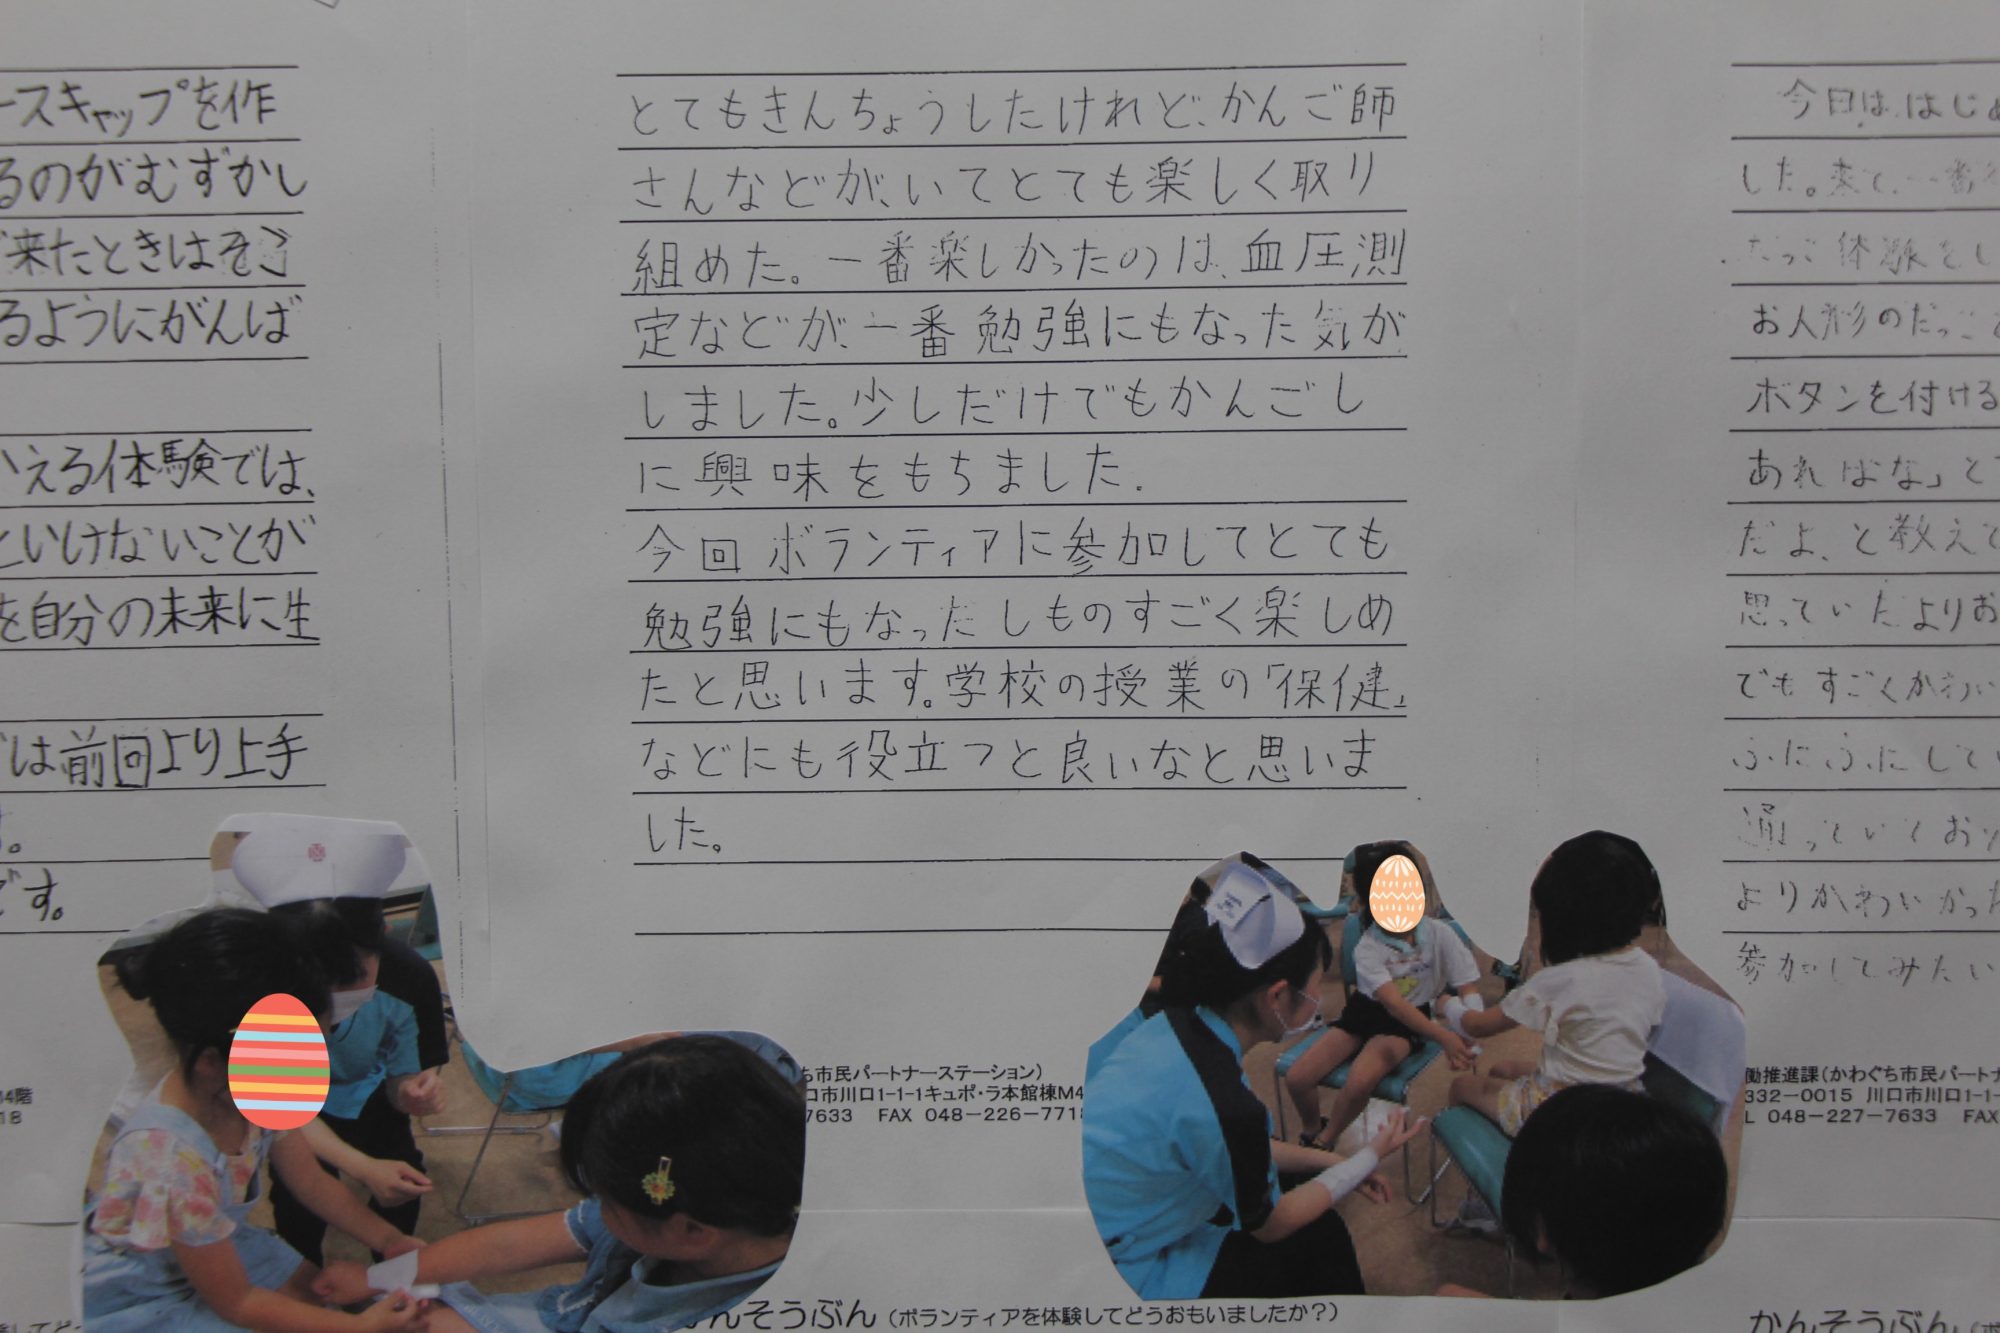 ースキャップを作
るのがむずかし
来たときは
るようにがんば
かえる体験では、
といけないことが
を自分の未来に生
は前回より上手
。
です。
とてもきんちょうしたけれど、かんご師
さんなどが、いてとても楽しく取り
組めた。一番楽しかったのは、血圧測
定などが、一番勉強にもなった気が
しました。少しだけでもかんごし
に興味をもちました.
今回ボランティアに参加してとても
勉強にもなったしものすごく楽しめ
たと思います。学校の授業の「保健」
などにも役立つと良いなと思いま
した。
ち市民パートナーステーション)
口市川口1-1-1キュポ・ラ本館棟M4
7633 FAX 048-226-7718
かんそうぶん (ボランティアを体験してどうおもいましたか?)
今日は、はじめ
した。来て、一番
だっこ体験をし
お人形のだっこ
ボタンを付ける
あればな」と
だよ、と教えて
思っていたよりお
でもすごくかわい
ふにふにしてい
通っていてお
よりかわいかった
参加してみたい
働推進課(かわぐち市民パートナ
332-0015 川口市川口1-1-
L 048-227-7633 FAX
かんそうぶん
M4階
18